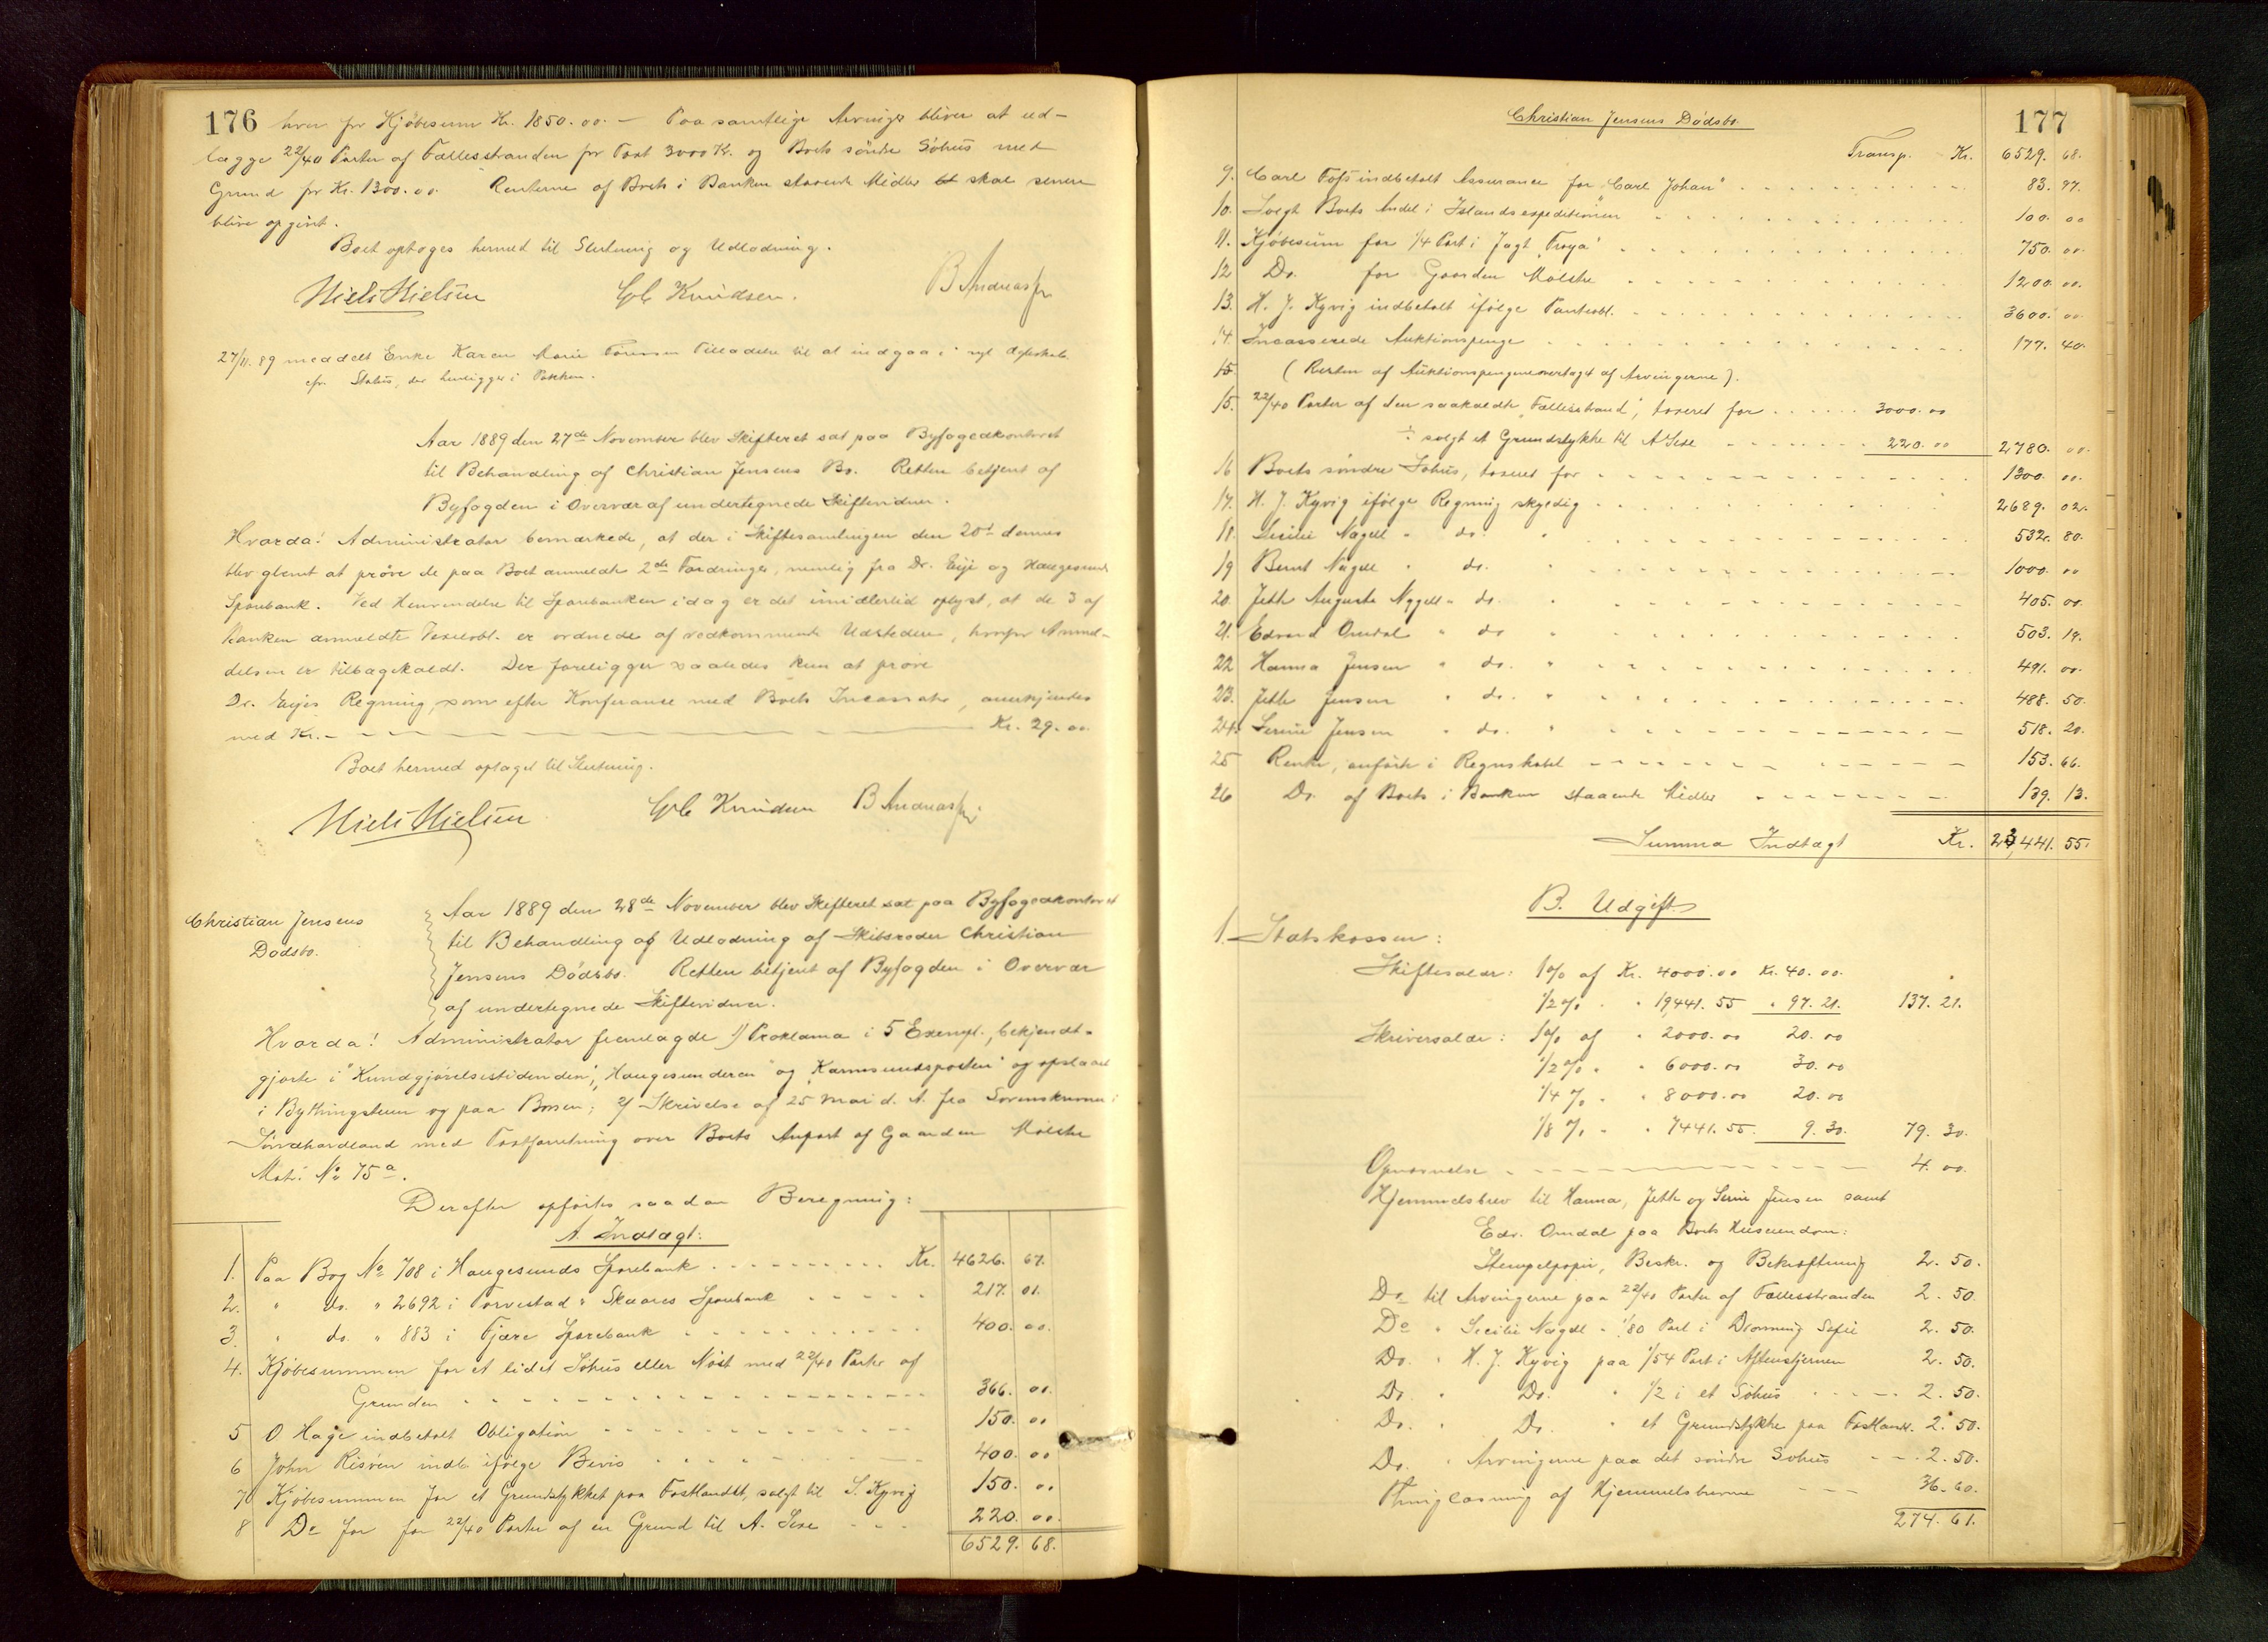 176 hver for Kjøbesum Kr. 1850.00. — Paa samtlige Arvinger bliver at ud-
lægge 22/40 Parter af Fællesstranden for Taxt 3000 Kr. og Boets søndre Søhus med
Grund for Kr. 1300.00. Renterne af Boets i Banken staaende Midler skal senere
blive opgivet.
Boet optoges hermed til Slutning og Udlodning.
Niels Nielsen Knudsen. B Andreas
27/11.89 meddelt Enke Karen Marie Tilladelse til at indgaa i nyt Ægteskab
cfr. Status, der henligger i Pakken.
Aar 1889 den 27de November blev Skifteret sat paa Byfogedkontoret
til Behandling af Christian Jensens Bo. Retten betjent af
Byfogden i Overvær af undertegnede Skiftevidner.
Hvorda! Administrator bemærkede, at der i Skiftesamlingen den 20d dennes
blev glemt at prøve de paa Boet anmeldte 2de Fordringer, nemlig fra Dr. Eije og Haugesunds
Sparebank. Ved Henvendelse til Sparebanken idag er det imidlertid oplyst, at de 3 af
Banken anmeldte Vexelobl. er ordnede af vedkommende Udstedere, hvorfor Anmel-
delsen er tilbagekaldt. Der foreligger saaledes kun at prøve
Dr. Eijes Regning, som efter Konferance med Boets Incassator, anerkjendes
med Kr. - Kr. 29.00
Boet hermed optaget til Slutning.
Niels Nielsen Knudsen B Andreas
Christian Jensens
Dødsbo.
Aar 1889 den 28de November blev Skifteret sat paa Byfogedkontoret
til Behandling og Udlodning af Skibsreder Christian
Jensens Dødsbo. Retten betjent af Byfogden i Overvær
af undertegnede Skiftevidner.
Hvorda! Administrator fremlagde 1) Proklama i 5 Exempl., bekjendt-
gjorte i "Kundgjørelsestidenden", "Haugesunderen" og "Karmsundsposten" og opslaaet
i Bythingstuen og paa Børsen; 2/ Skrivelse af 25 Mai d. A. fra Sorenskriveren i
Søndhordland med Taxtforretning over Boets Anpart af Gaarden Mølstre
Matr. No 75a.
Derefter opførtes saadan Beregning:
A. Indtægt:
1. Paa Bog No 708 i Haugesunds Sparebank Kr. 4626. 67.
2. " do. " 2692 i Torvestad & Skaares Sparebank 217. 01.
3. " do. " 883 i Fjære Sparebank 400. 00.
4. Kjøbesummen for et lidet Søhus eller Nøst med 22/40 Parter af
Grunden 366. 00.
5 O Hage indbetalt Obligation 150. 00
6 John Risøen indb. ifølge Bevis 400. 00
7 Kjøbesummen for et Grundstykket paa Fastlandet, solgt til S. Kyvig 150. 00
8 Do for for 22/40 Parter af en Grund til A. Sexe 220. 00.
6529. 68.
Christian Jensens Dødsbo. 177
Transp. Kr. 6529. 68.
9. Carl Foss indbetalt Assurance for "Carl Johan" 83. 97.
10. Solgt Boets Andel i Islandsexpeditionen 100. 00
11. Kjøbesum for 1/4 Part i Jagt "Frøya" 750. 00.
12 Do. for Gaarden Mølstre 1200. 00.
13. H. J. Kyvig indbetalt ifølge Panteobl. 3600. 00
14. Incasserede Auktionspenge 177. 40.
15. (Resten af Auktionspengene overtaget af Arvingerne).
15. 22/40 Parter af den saakaldte "Fællesstrand", taxeret for 3000.00
÷ solgt et Grundstykke til A Sexe 220.00 2780. 00.
16 Boets søndre Søhus, taxeret for 1300. 00.
17. H. J. Kyvig ifølge Regning skyldig 2689. 02.
18. Secilie Nagell " do. " 532. 80.
19 Bernt Nagell " do. " 1000. 00
20. Jette Augusta Nygell " do. " 405. 00.
21. Edvard Omdal " do " 503. 19.
22 Hanna Jensen " do. " 491. 00.
23. Jette Jensen " do. " 488. 50.
24. Serine Jensen " do. " 518. 20.
25 Renter, anførte i Regnskabet 153. 66.
26 Do. af Boets i Banken staaende Midler 139. 13.
Summa Indtægt Kr. 23,441. 55.
B. Udgift
1. Statskassen:
Skiftesalær: 1% af Kr. 4000.00 Kr. 40.00.
1/2% " " 19,441.55 " 97.21. 137. 21.
Skriversalær: 1% af " 2000.00 20.00
1/2% " " 6000.00 30.00
1/4% " " 8000.00 20.00
1/8% " " 7441.55 9.30. 79. 30.
Opnævnelse 4. 00.
Hjemmelsbrev til Hanna, Jette og Serine Jensen samt
Edv. Omdal paa Boets Huseiendom:
Stempelpapir, Beskr. og Bekræftning 2. 50.
Do til Arvingerne paa 22/40 Parter af Fællesstranden 2. 50.
Do " Secilie Nagell " 1/80 Part i Dronning Sofie 2. 50.
Do. " H. J. Kyvig paa 1/54 Part i Aftenstjernen 2. 50.
Do. " Do. " 1/2 i et Søhus 2. 50.
Do. " Do. " et Grundstykke paa Fastlandet. 2. 50.
Do. " Arvingerne paa det søndre Søhus 2. 50.
Thinglæsning af Hjemmelsbrevene 36. 60.
274. 61.